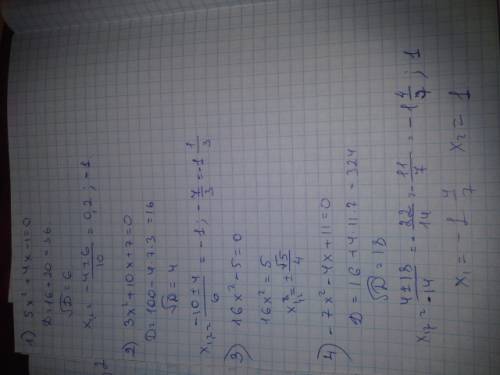 1) 5x² + 4x - 1 = 0
D = 16 + 20 = 36
√D = 6
x₁,₂ = (-4 ± 6)/10 = 0,2 ; -1
2) 3x² + 10x + 7 = 0
D = 100 - 4·7·3 = 16
√D = 4
x₁,₂ = (-10 ± 4)/6 = -1 ; -7/3 = -1 1/3
3) 16x² - 5 = 0
16x² = 5
x₁,₂ = ±√5/4
4) -7x² - 4x + 11 = 0
D = 16 + 4·11·7 = 324
√D = 18
x₁,₂ = (4 ± 18)/-14 = -22/14 = -11/7 = -1 4/7 ; 1
x₁ = -1 4/7 x₂ = 1